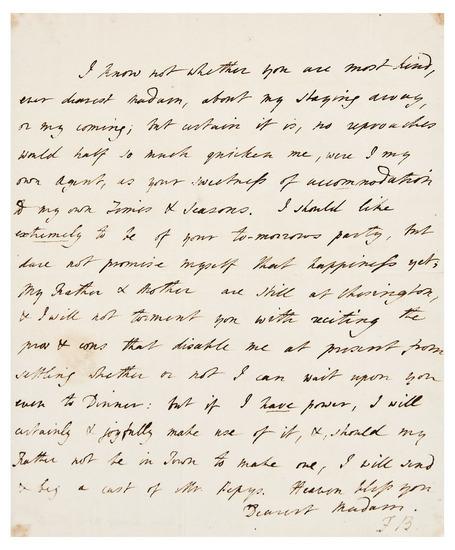 I know not whether you are most kind,
ever dearest madam, about my staying away,
or my coming; but certain it is, no reproaches
would half so much quicken me, were I my
own agent, as your sweetness of accommodation
to my own Times & Seasons. I should like
extremely to be of your to-morrows party, but
dare not promise myself that happiness yet;
my Father & Mother are still at Chesington,
& I will not torment you with reciting the
pros & cons that disable me at present from
settling whether or not I can wait upon you
even to Dinner: but if I have power, I will
certainly & joyfully make use of it, &, should my
Father not be in Town to make one, I will send
& beg a cast of Mr. Pepys. Heaven bless you
Dearest Madam.
F B.